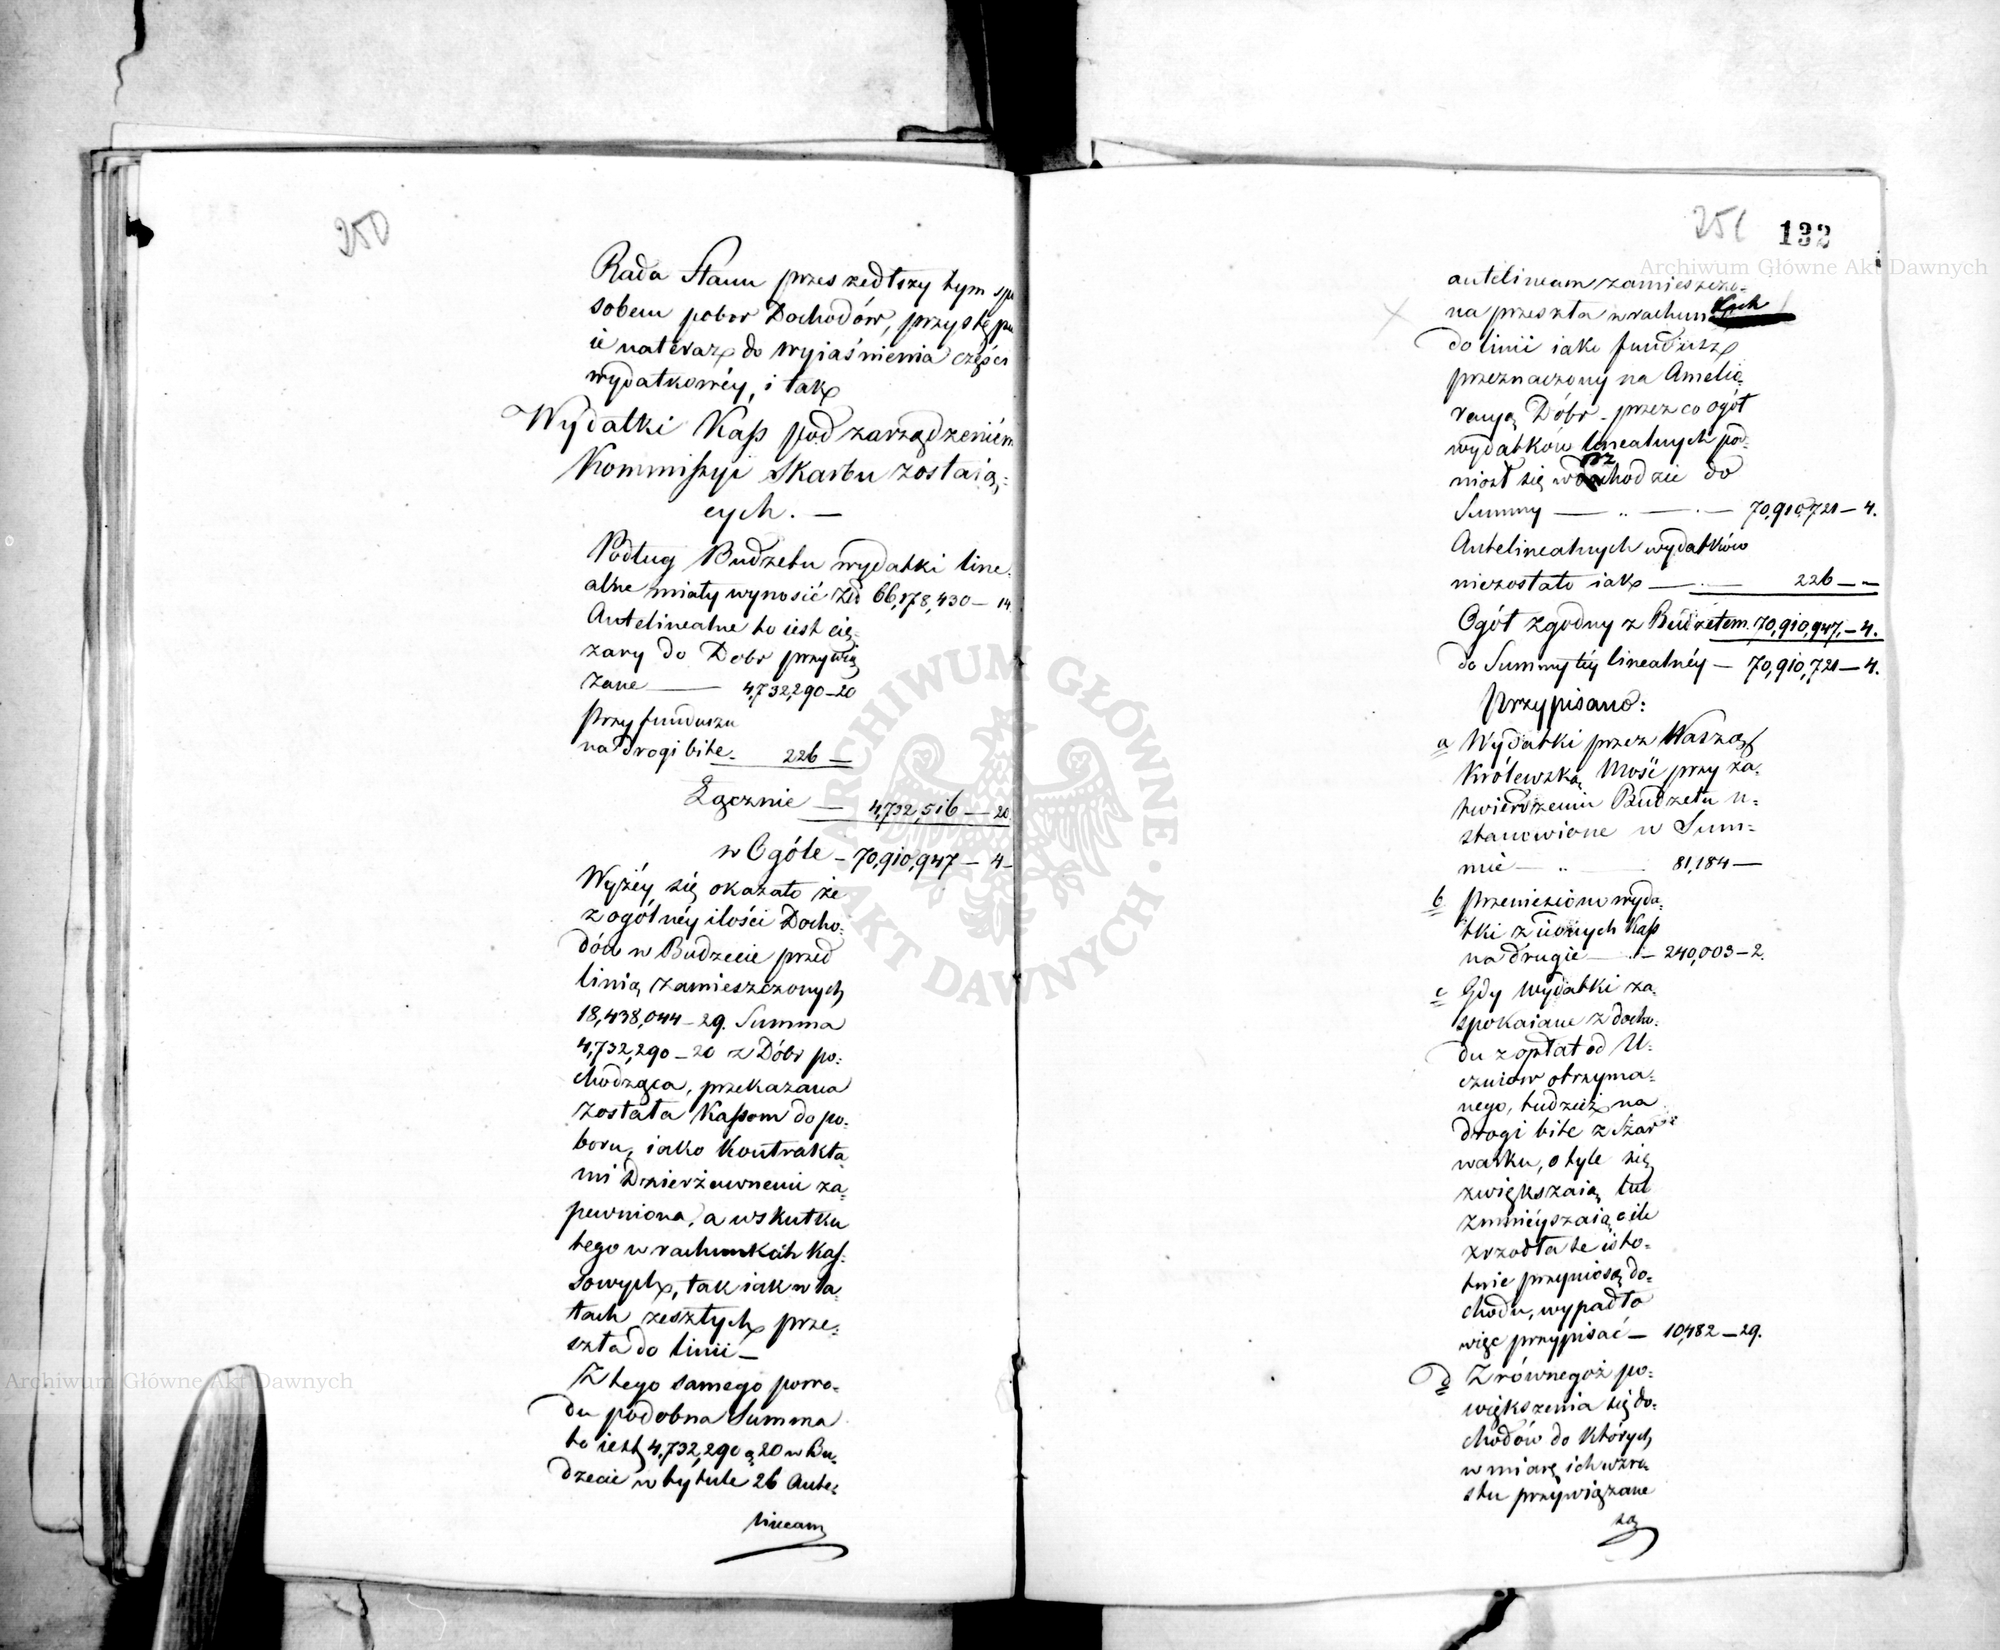 250
Rada Stanu przeszedłszy tym spo
sobem pobor Dochodów, przystępu
ie nateraz do wyiaśnienia części
wydatkowéy, i tak
Wydatki Kass pod zarządzeniem
Kommissyi Skarbu zostaią,:
cych. —
Podług Budzetu wydatki line:
alne miały wynosić Złł 66,178,430 — 14.
Antelinealne to iest cię:
zary do Dobr przywią
zane — 4,732,290 — 20
przy funduszu
na drogi bite. 226 —
Łącznie — 4,732,516 — 20.
w Ogóle — 70,910,947 — 4 —
Wyżéy się okazało że
z ogólnéy ilości Docho:
dów w Budzecie przed
linią zamieszczonych
18,438,044 — 29. Summa
4,732,290 — 20 z Dóbr po:
chodząca, przekazana
została Kassom do po:
boru, iako Kontrakta
mi Dzierżawnemi za:
pewniona, a wskutku
tego w rachunkach Kas:
sowych, tak iak w la:
tach zeszłych prze:
szła do linii —
Z tego samego powo:
du podobna Summa
to iest 4,732,290 g 20 w Bu:
dzecie w tytule 26 Ante:
lineam
251 132
antelineam zamieszczo:
na przeszła w rachunkach
do linii iako fundusz
przeznaczony na Amelio:
racyą Dóbr — przez co ogół
wydatków linealnych pod:
niosł się w rozchodzie do
Summy — „ — . — 70,910,721 — 4.
Antelinealnych wydatków
niezostało iak — . — 226 — —
Ogół zgodny z Budzetem. 70,910,947, — 4.
do Summy téy linealnéy — 70,910,721 — 4.
Przypisano:
a Wydatki przez Waszą
Królewską Mość przy za:
twierdzeniu Budzetu u:
stanowione w Sum:
mie — „ — 81,184 —
b Przeniesiono wyda:
tki z iednych Kass
na drugie — . — 240,003 — 2.
c Gdy wydatki za:
spokaiane z docho:
du z opłat od U:
czniow otrzyma:
nego, tudzież na
drogi bite z Szar
warku, o tyle się
zwiększaią lub
zmnieyszaią o ile
zrzodła te isto:
tnie przyniosą do:
chodu, wypadło
więc przypisać — 10,482 — 29.
d Z równegoż po:
większenia się do:
chodów do których
w miarę ich wzro
stu przywiązane
są
ARCHIWUM GŁÓWNE AKT DAWNYCH
Archiwum Główne Akt Dawnych
Archiwum Główne Akt Dawnych